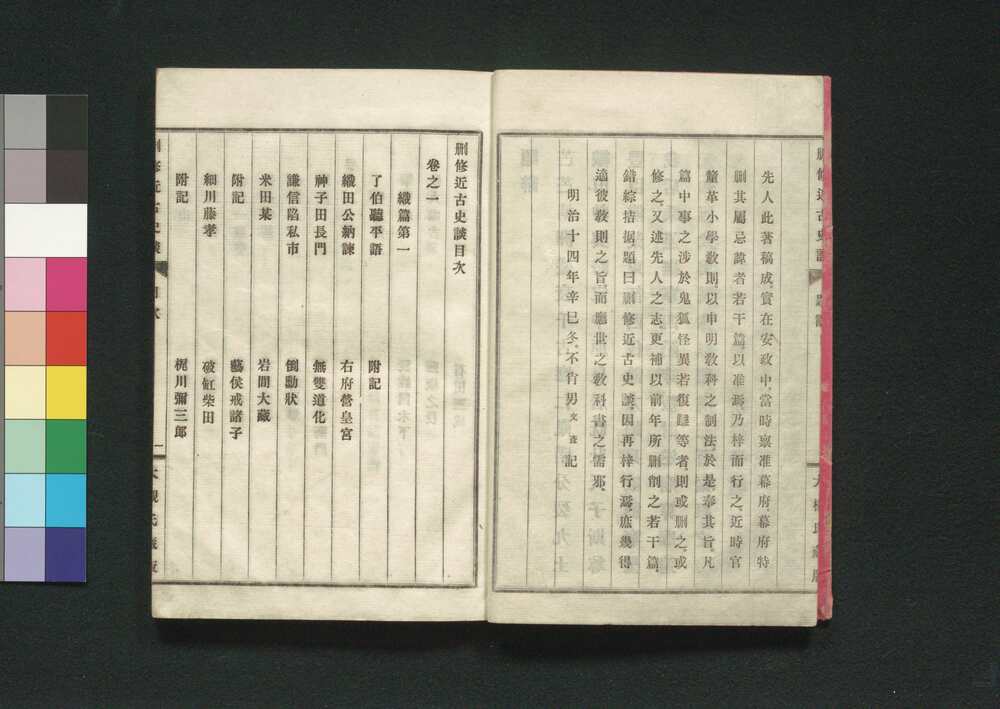 先人此著稿成實在安政中當時稟准幕府幕府特
刪其屬忌諱者若干篇以准焉乃梓而行之近時官
釐革小學敎則以申明敎科之制法於是奉其旨凡
篇中事之涉於鬼狐怪異若復讎等者則或刪之或
修之又述先人之志更補以前年所刪削之若干篇
錯綜拮据題曰刪修近古史談因再梓行焉庶幾得
適彼敎則之旨而應世之敎科書之需邪
明治十四年辛巳冬不肖男 文彥 記
刪修近古史談目次
卷之一
織篇第一
了伯聽平語 附記
織田公納諫 右府營皇宮
神子田長門 無雙道化
謙信陷私市 倒勳狀
米田某 岩間大藏
附記 藝侯戒諸子
細川藤孝 破缸柴田
附記 梶川彌三郎
刪修近古史談 目次 一 大槻氏藏版